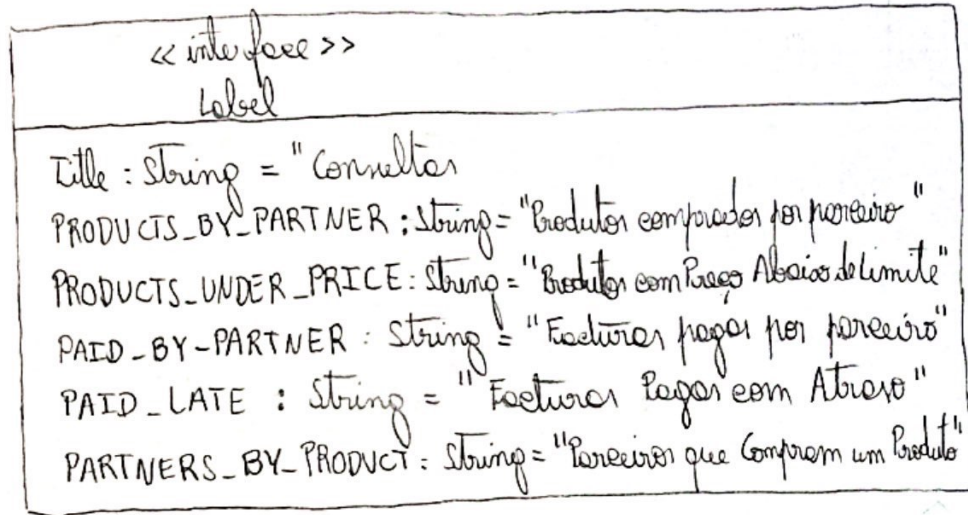 <<interface>>
Label
Title : String = "Consultas
PRODUCTS_BY_PARTNER : String = "Produtos comprados por parceiro"
PRODUCTS_UNDER_PRICE : String = "Produtos com Preço Abaixo de Limite"
PAID_BY_PARTNER : String = "Facturas pagas por parceiro"
PAID_LATE : String = "Facturas Pagas com Atraso"
PARTNERS_BY_PRODUCT : String = "Parceiros que Compram um Produto"